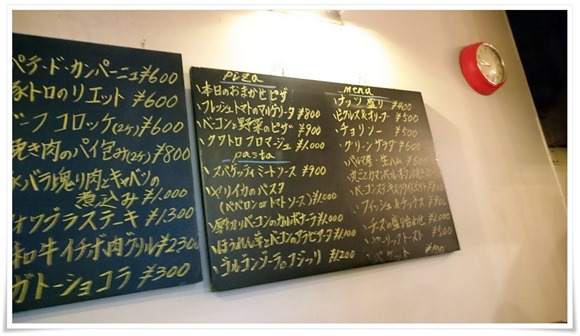 パテ・ド・カンパーニュ ¥600
豚トロのリエット ¥600
ビーフコロッケ(2ケ) ¥600
挽き肉のパイ包み(2ケ) ¥800
豚バラ塊り肉とキャベツの
煮込み ¥1,000
フォワグラステーキ ¥1,300
和牛イチボ肉グリル ¥230
ガトーショコラ ¥300
pizza
本日のおまかせピザ
フレッシュトマトのマルゲリータ ¥800
ベーコンと野菜のピザ ¥900
クワトロフロマージュ ¥1,000
pasta
スパゲッティミートソース ¥900
ヤリイカのパスタ
(ペペロン or トマトソース) ¥1,000
厚切りベーコンのカルボナーラ ¥1,000
ほうれん草とベーコンのアラビアータ ¥1,100
ゴルゴンゾーラのフジッリ ¥1,200
menu
ナッツ盛り ¥400
ピクルス&オリーブ ¥500
チョリソー ¥500
グリーンサラダ ¥600
パルマ産・生ハム ¥600
丸ごとカマンベール
フィッシュ&チップス ¥900
チーズの盛り合わせ ¥1,000
ガーリックトースト
バケット